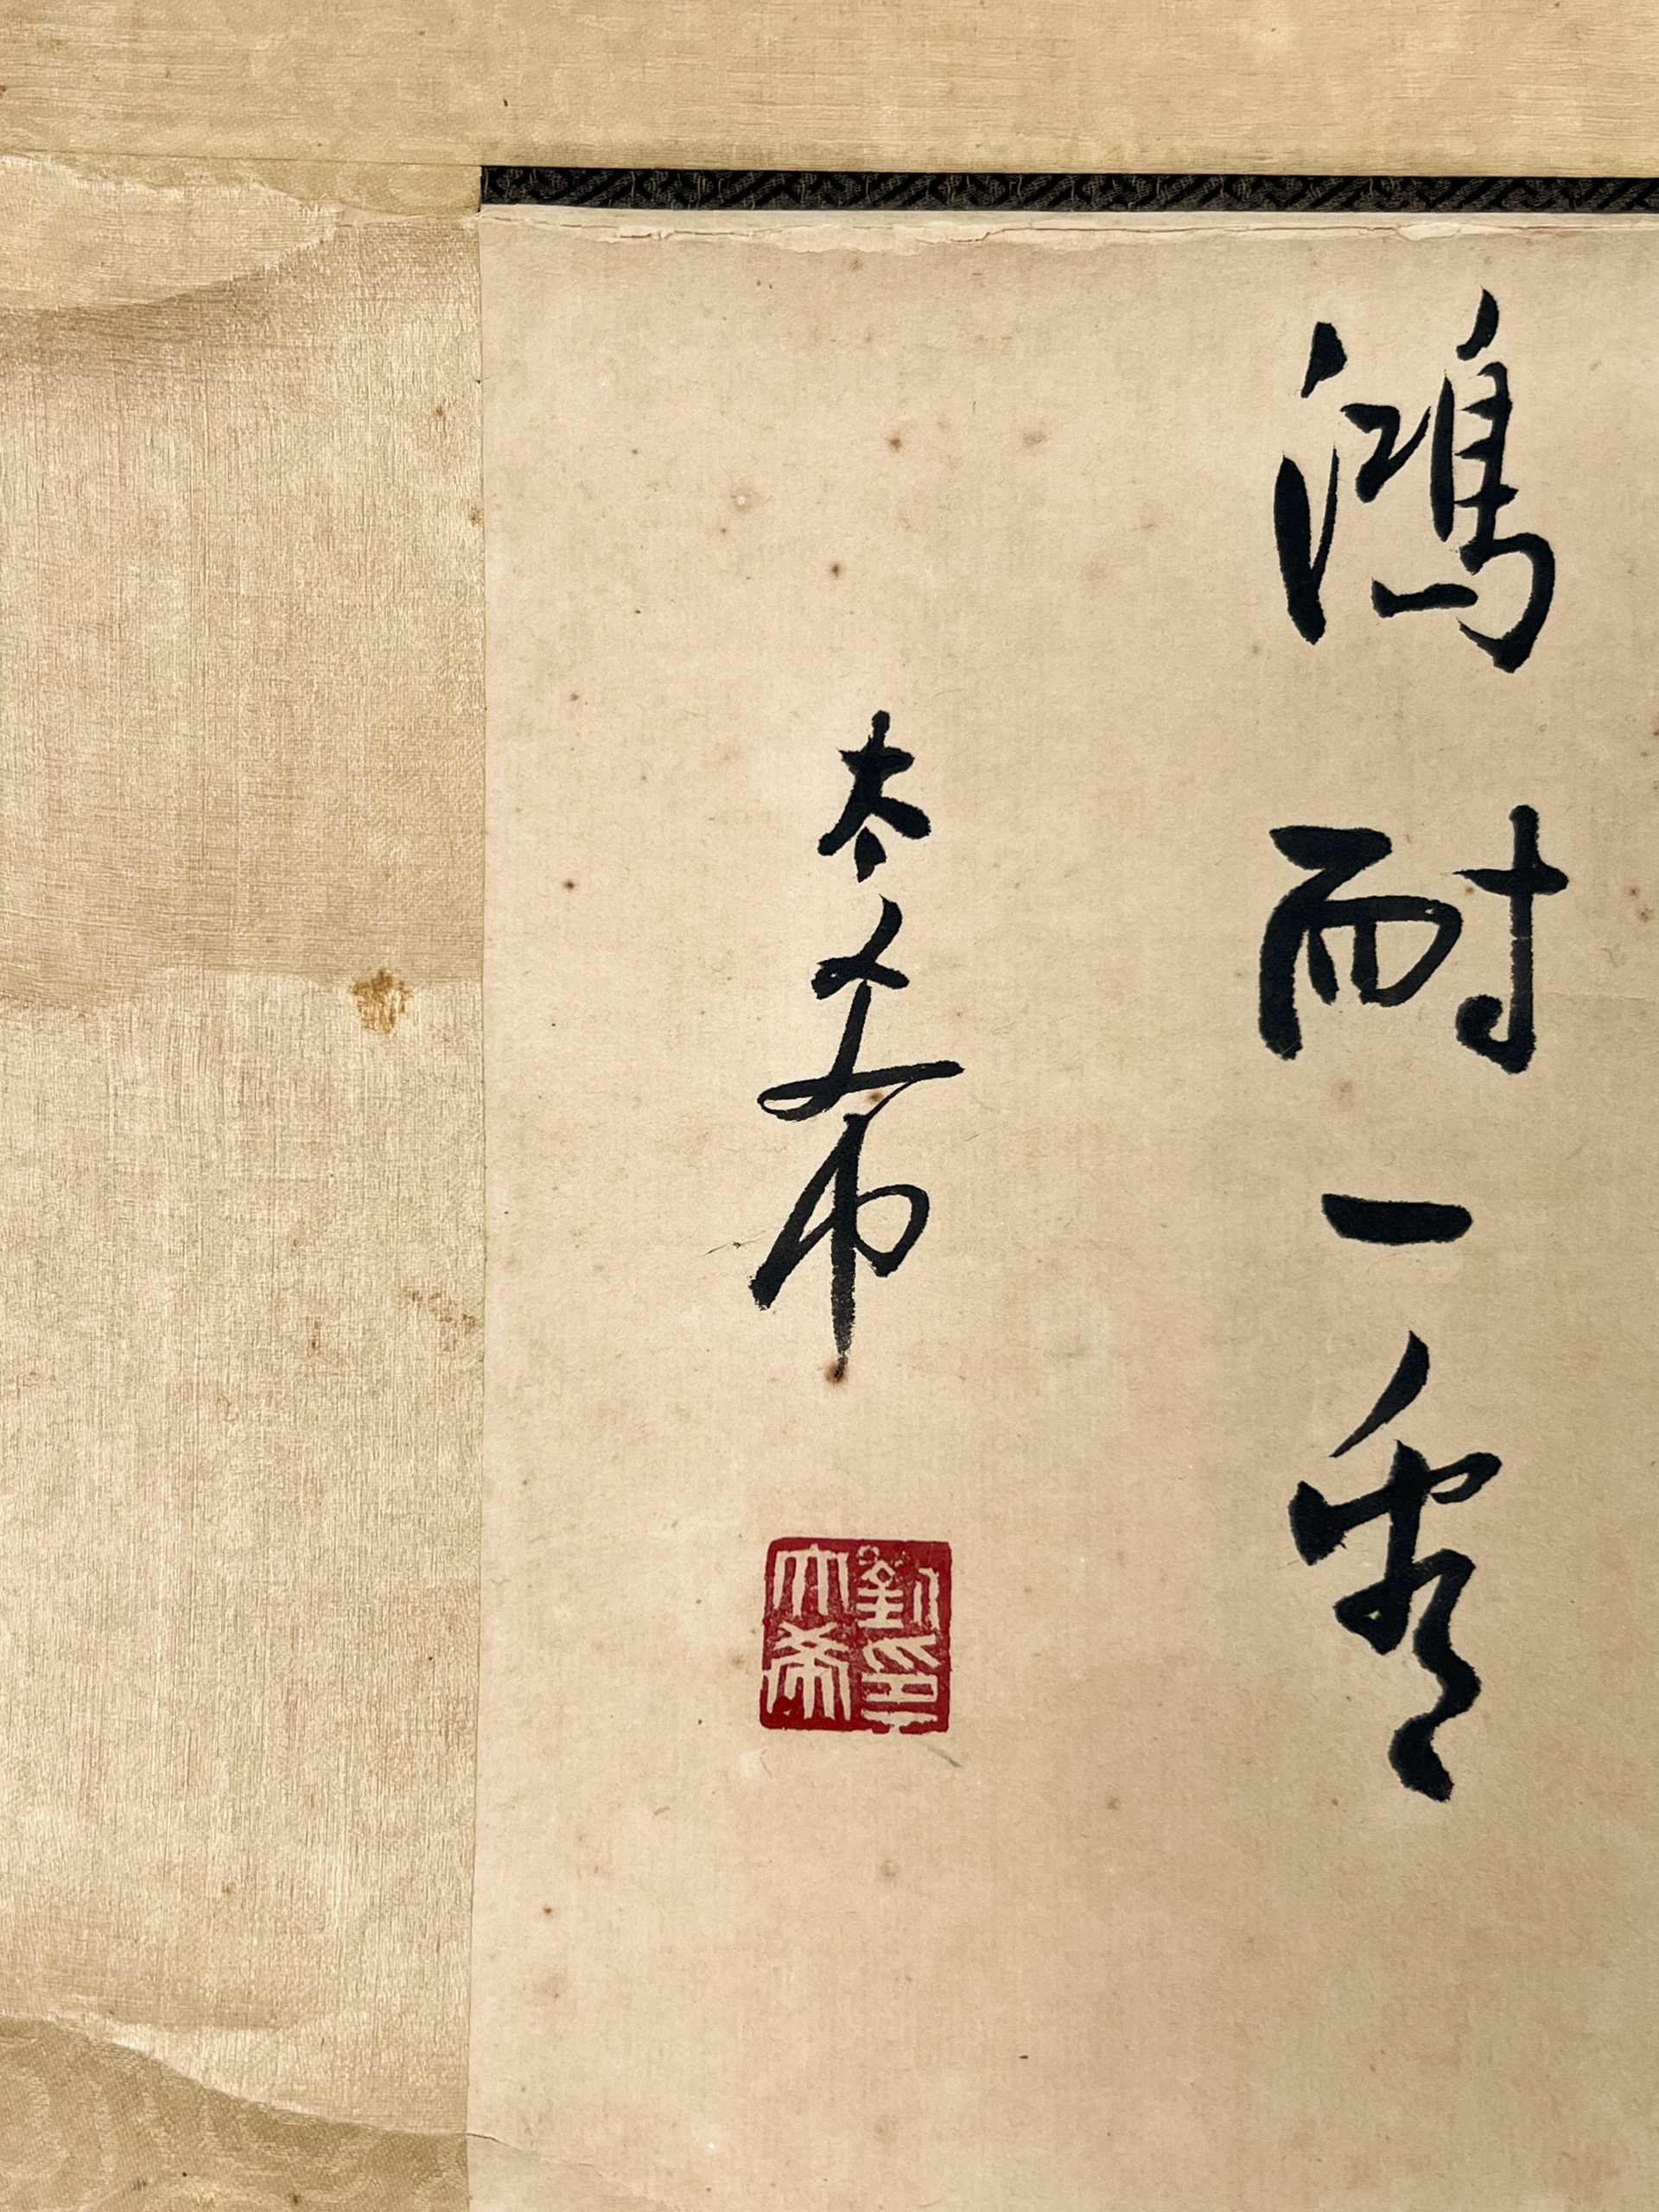 鴻耐一
太希
劉印
太希